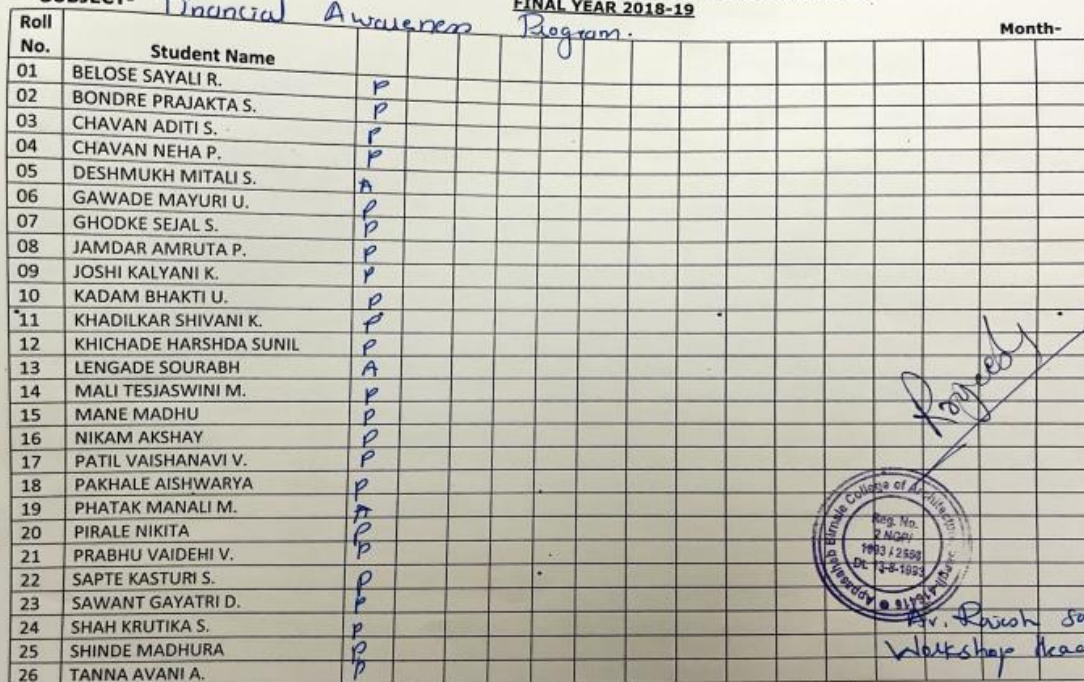 SUBJECT- Financial Awareness Program.
FINAL YEAR 2018-19
Roll No. Student Name Month-
01 BELOSE SAYALI R. P
02 BONDRE PRAJAKTA S. P
03 CHAVAN ADITI S. P
04 CHAVAN NEHA P. P
05 DESHMUKH MITALI S. A
06 GAWADE MAYURI U. P
07 GHODKE SEJAL S. P
08 JAMDAR AMRUTA P. P
09 JOSHI KALYANI K. P
10 KADAM BHAKTI U. P
11 KHADILKAR SHIVANI K. P
12 KHICHADE HARSHDA SUNIL P
13 LENGADE SOURABH A
14 MALI TESJASWINI M. P
15 MANE MADHU P
16 NIKAM AKSHAY P
17 PATIL VAISHANAVI V. P
18 PAKHALE AISHWARYA P
19 PHATAK MANALI M. A
20 PIRALE NIKITA P
21 PRABHU VAIDEHI V. P
22 SAPTE KASTURI S. P
23 SAWANT GAYATRI D. P
24 SHAH KRUTIKA S. P
25 SHINDE MADHURA P
26 TANNA AVANI A. P
Appasaheb Birnale College of Architecture, Sangli-416416
Reg. No.
2 NGP/
1993 / 2566
Dt. 13-8-1993
Ar. Rajesh
Workshop Head